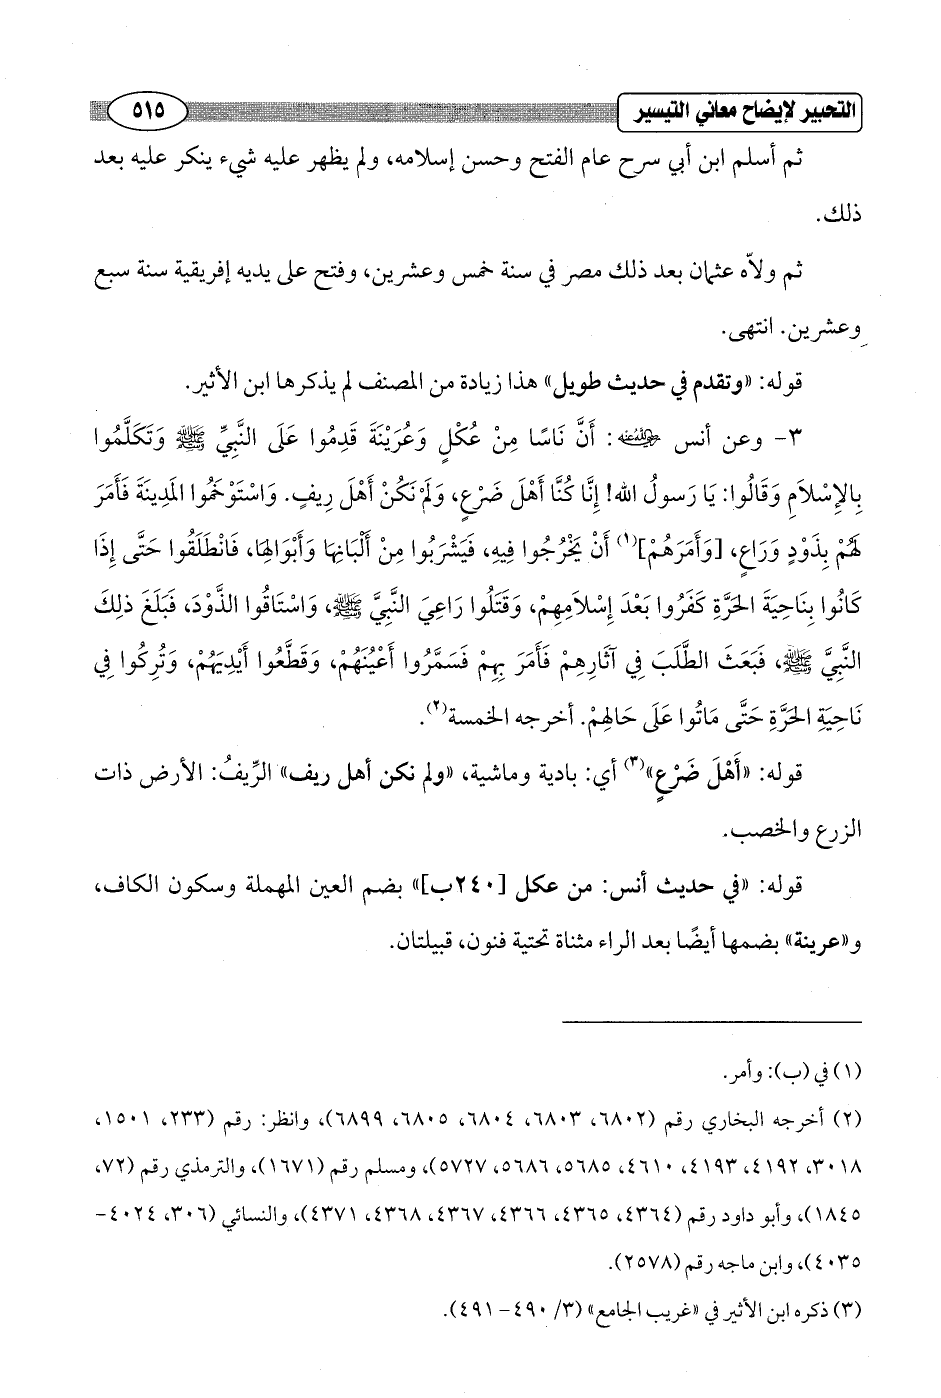 التحبير لإيضاح معاني التيسير
٥١٥
ثم أسلم ابن أبي سرح عام الفتح وحسن إسلامه، ولم يظهر عليه شيء ينكر عليه بعد
ذلك.
ثم ولاّه عثمان بعد ذلك مصر في سنة خمس وعشرين، وفتح على يديه إفريقية سنة سبع
وعشرين. انتهى.
قوله: «وتقدم في حديث طويل» هذا زيادة من المصنف لم يذكرها ابن الأثير.
٣- وعن أنس رضي الله عنه: أَنَّ نَاسًا مِنْ عُكْلٍ وَعُرَيْنَةَ قَدِمُوا عَلَى النَّبِيِّ ﷺ وَتَكَلَّمُوا
بِالإِسْلاَمِ وَقَالُوا: يَا رَسولُ الله! إِنَّا كُنَّا أَهْلَ ضَرْعٍ، وَلَمْ نَكُنْ أَهْلَ رِيفٍ. وَاسْتَوْخَمُوا المَدِينَةَ فَأَمَرَ
لَهُمْ بِذَوْدٍ وَرَاعٍ، [وَأَمَرَهُمْ](١) أَنْ يَخْرُجُوا فِيهِ، فَيَشْرَبُوا مِنْ أَلْبَانِهَا وَأَبْوَالِهَا، فَانْطَلَقُوا حَتَّى إِذَا
كَانُوا بِنَاحِيَةَ الحَرَّةِ كَفَرُوا بَعْدَ إِسْلاَمِهِمْ، وَقَتَلُوا رَاعِيَ النَّبِيَّ ﷺ، وَاسْتَاقُوا الذَّوْدَ، فَبَلَغَ ذلِكَ
النَّبِيَّ ﷺ، فَبَعَثَ الطَّلَبَ فِي آثَارِهِمْ فَأَمَرَ بِهِمْ فَسَمَّرُوا أَعْيُنَهُمْ، وَقَطَّعُوا أَيْدِيَهُمْ، وَتُرِكُوا فِي
نَاحِيَةِ الحَرَّةِ حَتَّى مَاتُوا عَلَى حَالِهِمْ. أخرجه الخمسة(٢).
قوله: «أَهْلَ ضَرْعٍ»(٣) أي: بادية وماشية، «ولم نكن أهل ريف» الرِّيفُ: الأرض ذات
الزرع والخصب.
قوله: «في حديث أنس: من عكل [٢٤٠ب]» بضم العين المهملة وسكون الكاف،
و«عرينة» بضمها أيضًا بعد الراء مثناة تحتية فنون، قبيلتان.
(١) في (ب): وأمر.
(٢) أخرجه البخاري رقم (٦٨٠٢، ٦٨٠٣، ٦٨٠٤، ٦٨٠٥، ٦٨٩٩)، وانظر: رقم (٢٣٣، ١٥٠١،
٣٠١٨، ٤١٩٢، ٤١٩٣، ٤٦١٠، ٥٦٨٥، ٥٦٨٦، ٥٧٢٧)، ومسلم رقم (١٦٧١)، والترمذي رقم (٧٢،
١٨٤٥)، وأبو داود رقم (٤٣٦٤، ٤٣٦٥، ٤٣٦٦، ٤٣٦٧، ٤٣٦٨، ٤٣٧١)، والنسائي (٣٠٦، ٤٠٢٤-
٤٠٣٥)، وابن ماجه رقم (٢٥٧٨).
(٣) ذكره ابن الأثير في «غريب الجامع» (٣/ ٤٩٠- ٤٩١).